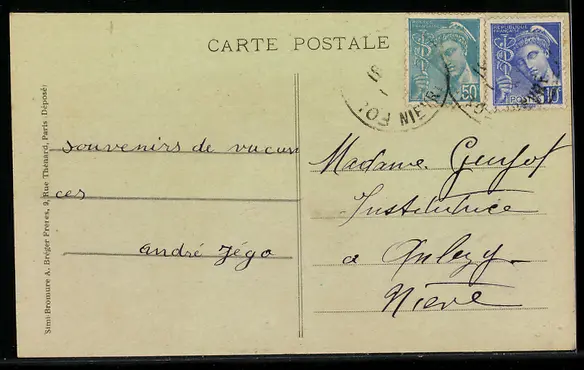 CARTE POSTALE
RÉPUBLIQUE FRANÇAISE
50
POSTES
10
NIEVRE
souvenirs de vacan
ces
andré Jégo
Madame Guyot
Institutrice
a Anlezy
Nièvre
Simili-Bromure A. Bréger Frères, 9, Rue Thénard, Paris (Déposé)